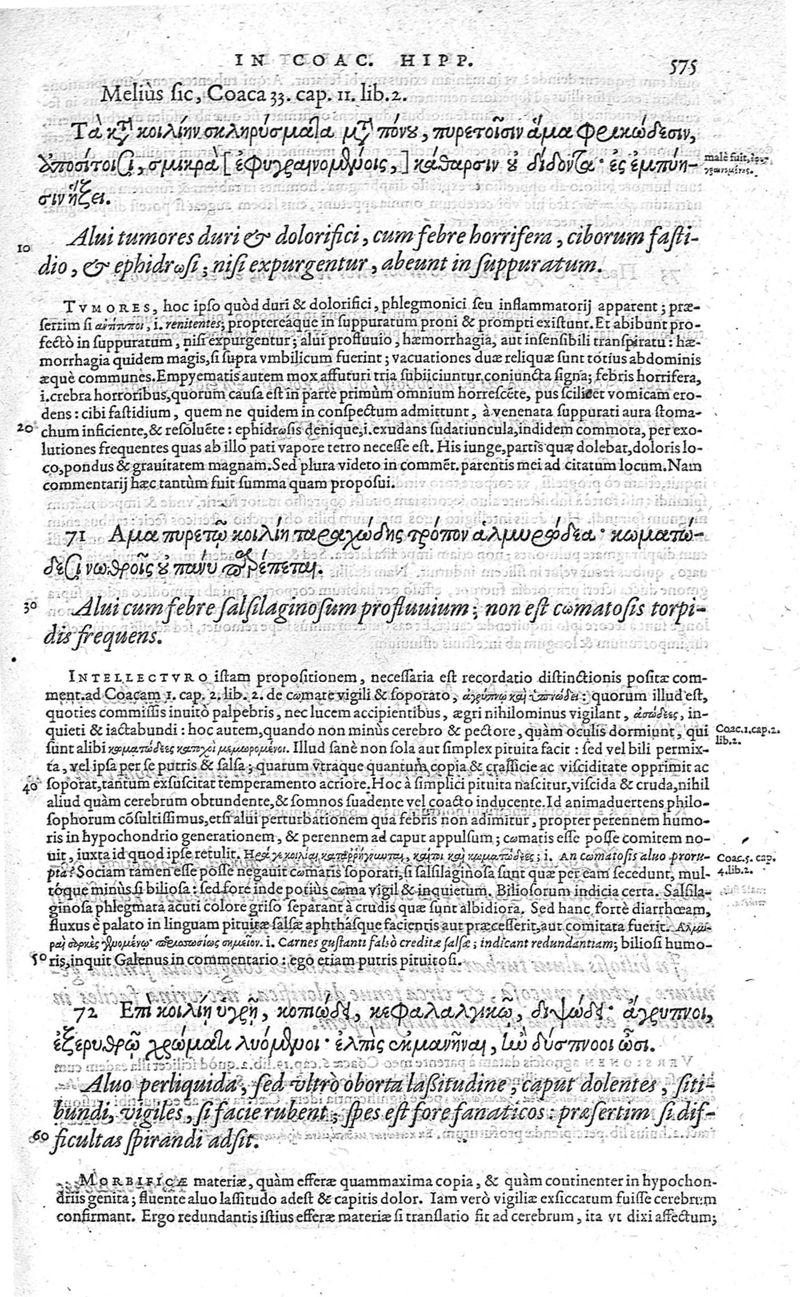 IN COAC. HIPP. 575
Meliùs sic, Coaca 33. cap. 11. lib. 2.
Τὰ κατὰ κοιλίην σκληρύσματα μετὰ πόνου, πυρετοῖσιν ἅμα φρικώδεσιν,
ὑποσίτοισι, σμικρὰ [ἐφυγραινομένοις,] κάθαρσιν οὐ διδόντα· ἐς ἐμπύη-
σιν ἥξει.
malè fuit,
10 Alui tumores duri & dolorifici, cum febre horrifera, ciborum fasti-
dio, & ephidrωsi; nisi expurgentur, abeunt in suppuratum.
TVMORES, hoc ipso quòd duri & dolorifici, phlegmonici seu inflammatorij apparent; præ-
sertim si ἀντίτυποι, i. renitentes; proptereáque in suppuratum proni & prompti existunt. Et abibunt pro-
fectò in suppuratum, nisi expurgentur; alui profluuio, hæmorrhagia, aut insensibili transpiratu: hæ-
morrhagia quidem magis, si supra vmbilicum fuerint; vacuationes duæ reliquæ sunt totius abdominis
æquè communes. Empyematis autem mox affuturi tria subijciuntur coniuncta signa; febris horrifera,
i. crebra horroribus, quorum causa est in parte primùm omnium horrescēte, pus scilicet vomicam ero-
dens: cibi fastidium, quem ne quidem in conspectum admittunt, à venenata suppurati aura stoma-
20 chum inficiente, & resoluēte: ephidrωsis denique, i. exudans sudatiuncula, indidem commota, per exo-
lutiones frequentes quas ab illo pati vapore tetro necesse est. His iunge, partis quæ dolebat, doloris lo-
co, pondus & grauitatem magnam. Sed plura videto in commēt. parentis mei ad citatum locum. Nam
commentarij hæc tantùm fuit summa quam proposui.
71 Ἅμα πυρετῷ κοιλίη ταραχώδης τρόπον ἁλμυρώδεα· κωματώ-
δεσι νωθροῖς οὐ πάνυ τρέπεται.
30 Alui cum febre salsilaginosum profluuium; non est cωmatosis torpi-
dis frequens.
INTELLECTVRO istam propositionem, necessaria est recordatio distinctionis positæ com-
ment. ad Coacam 1. cap. 2. lib. 2. de cωmate vigili & soporato, ἀγρύπνῳ καὶ ὑπνώδει: quorum illud est,
quoties commissis inuitò palpebris, nec lucem accipientibus, ægri nihilominus vigilant, ἀσώδεες, in-
quieti & iactabundi: hoc autem, quando non minùs cerebro & pectore, quàm oculis dormiunt, qui
Coac. 1. cap. 2.
lib. 2.
sunt alibi κωματώδεες Illud sanè non sola aut simplex pituita facit: sed vel bili permix-
ta, vel ipsa per se putris & salsa; quarum vtraque quantum copia & crassicie ac visciditate opprimit ac
40 soporat, tantum exsuscitat temperamento acriore. Hoc à simplici pituita nascitur, viscida & cruda, nihil
aliud quàm cerebrum obtundente, & somnos suadente vel coacto inducente. Id animaduertens philo-
sophorum cōsultissimus, etsi alui perturbationem qua febris non adimitur, propter perennem humo-
ris in hypochondrio generationem, & perennem ad caput appulsum; cωmatis esse posse comitem no-
uit, iuxta id quod ipse retulit. i. An cωmatosis aluo proru-
pta? Sociam tamen esse posse negauit cωmatis soporati, si salsilaginosa sunt quæ per eam secedunt, mul-
Coac. 5. cap.
4. lib. 2.
tóque minùs si biliosa: sed fore inde potiùs cωma vigil & inquietum. Biliosorum indicia certa. Salsila-
ginosa phlegmata acuti colore griso separant à crudis quæ sunt albidiora. Sed hanc fortè diarrhœam,
fluxus è palato in linguam pituitæ salsæ aphthásque facientis aut præcesserit, aut comitata fuerit.
i. Carnes gustanti falsò creditæ salsæ; indicant redundantiam; biliosi humo-
50 ris, inquit Galenus in commentario: ego etiam putris pituitosi.
72 Ἐπὶ κοιλίῃ ὑγρῇ, κοπιώδει, κεφαλαλγικῷ, διψώδει· ἀγρύπνοι,
ἐξερύθρῳ χρώματι λυόμενοι· ἐλπὶς ἐκμανῆναι, ἢν δύσπνοοι ὦσι.
Aluo perliquida, sed vltrò oborta lassitudine; caput dolentes, siti-
bundi, vigiles, si facie rubent; spes est fore fanaticos: præsertim si dif-
60 ficultas spirandi adsit.
MORBIFICÆ materiæ, quàm efferæ quammaxima copia, & quàm continenter in hypochon-
driis genita; fluente aluo lassitudo adest & capitis dolor. Iam verò vigiliæ exsiccatum fuisse cerebrum
confirmant. Ergo redundantis istius efferæ materiæ si translatio fit ad cerebrum, ita vt dixi affectum;